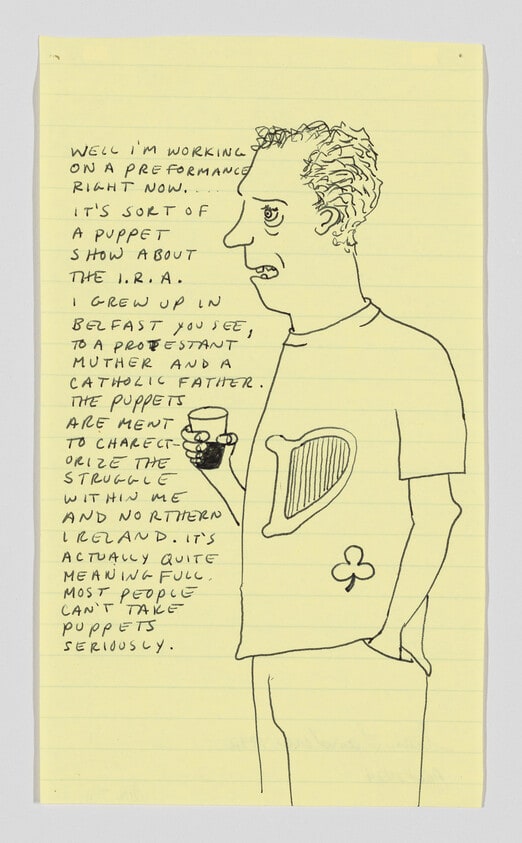 WELL I'M WORKING
ON A PREFORMANCE
RIGHT NOW.....
IT'S SORT OF
A PUPPET
SHOW ABOUT
THE I.R.A.
I GREW UP IN
BELFAST YOU SEE,
TO A PROTESTANT
MUTHER AND A
CATHOLIC FATHER.
THE PUPPETS
ARE MENT
TO CHARECT-
ORIZE THE
STRUGGLE
WITHIN ME
AND NORTHERN
IRELAND. IT'S
ACTUALLY QUITE
MEANING FULL.
MOST PEOPLE
CAN'T TAKE
PUPPETS
SERIOUSLY.